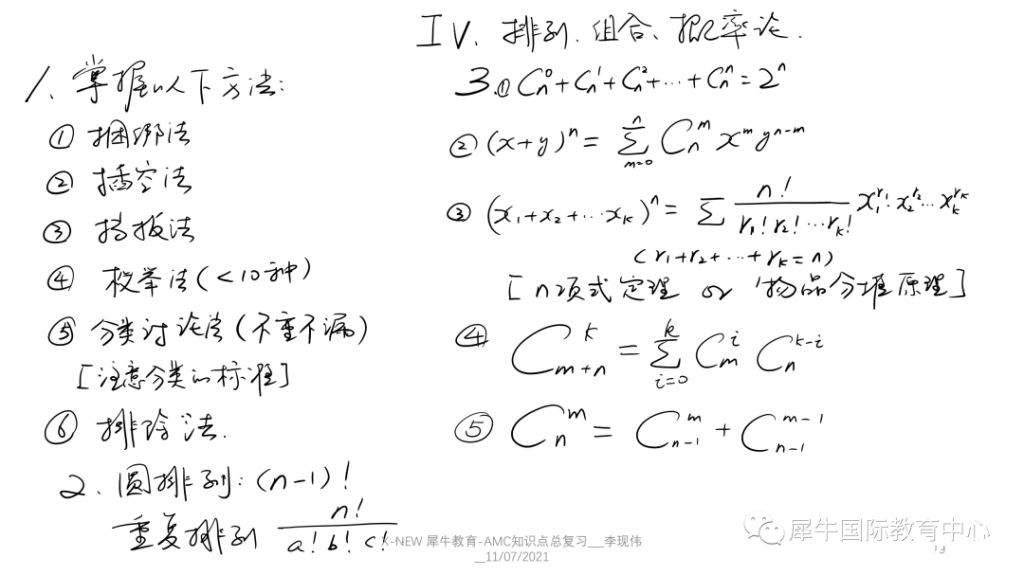 IV、排列、组合、概率论.
1、掌握以下方法:
① 捆绑法
② 插空法
③ 挡板法
④ 枚举法(<10种)
⑤ 分类讨论法(不重不漏)
[注意分类的标准]
⑥ 排除法.
2、圆排列:(n-1)!
重复排列 n!/(a!b!c!)
3.① C_n^0+C_n^1+C_n^2+…+C_n^n=2^n
② (x+y)^n = ∑_{m=0}^{n} C_n^m x^m y^{n-m}
③ (x_1+x_2+…x_k)^n = ∑ n!/(r_1!r_2!…r_k!) x_1^{r_1}·x_2^{r_2}…x_k^{r_k}
(r_1+r_2+…+r_k=n)
[n项式定理 or 物品分堆原理]
④ C_{m+n}^k = ∑_{i=0}^{k} C_m^i C_n^{k-i}
⑤ C_n^m = C_{n-1}^m + C_{n-1}^{m-1}
-NEW 犀牛教育-AMC知识点总复习__李现伟
__11/07/2021
犀牛国际教育中心